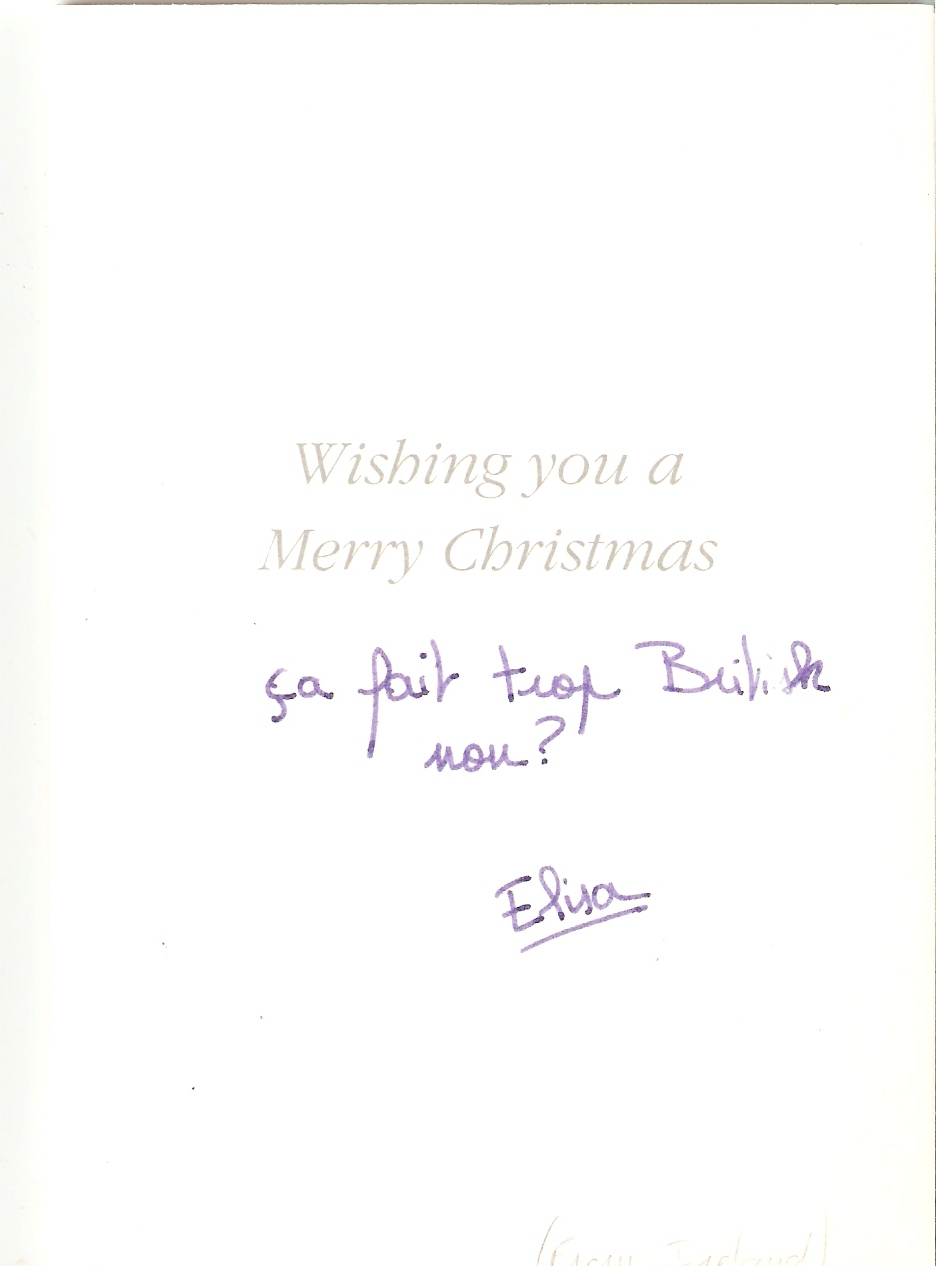 Wishing you a
Merry Christmas
ça fait trop British
non?
Elisa